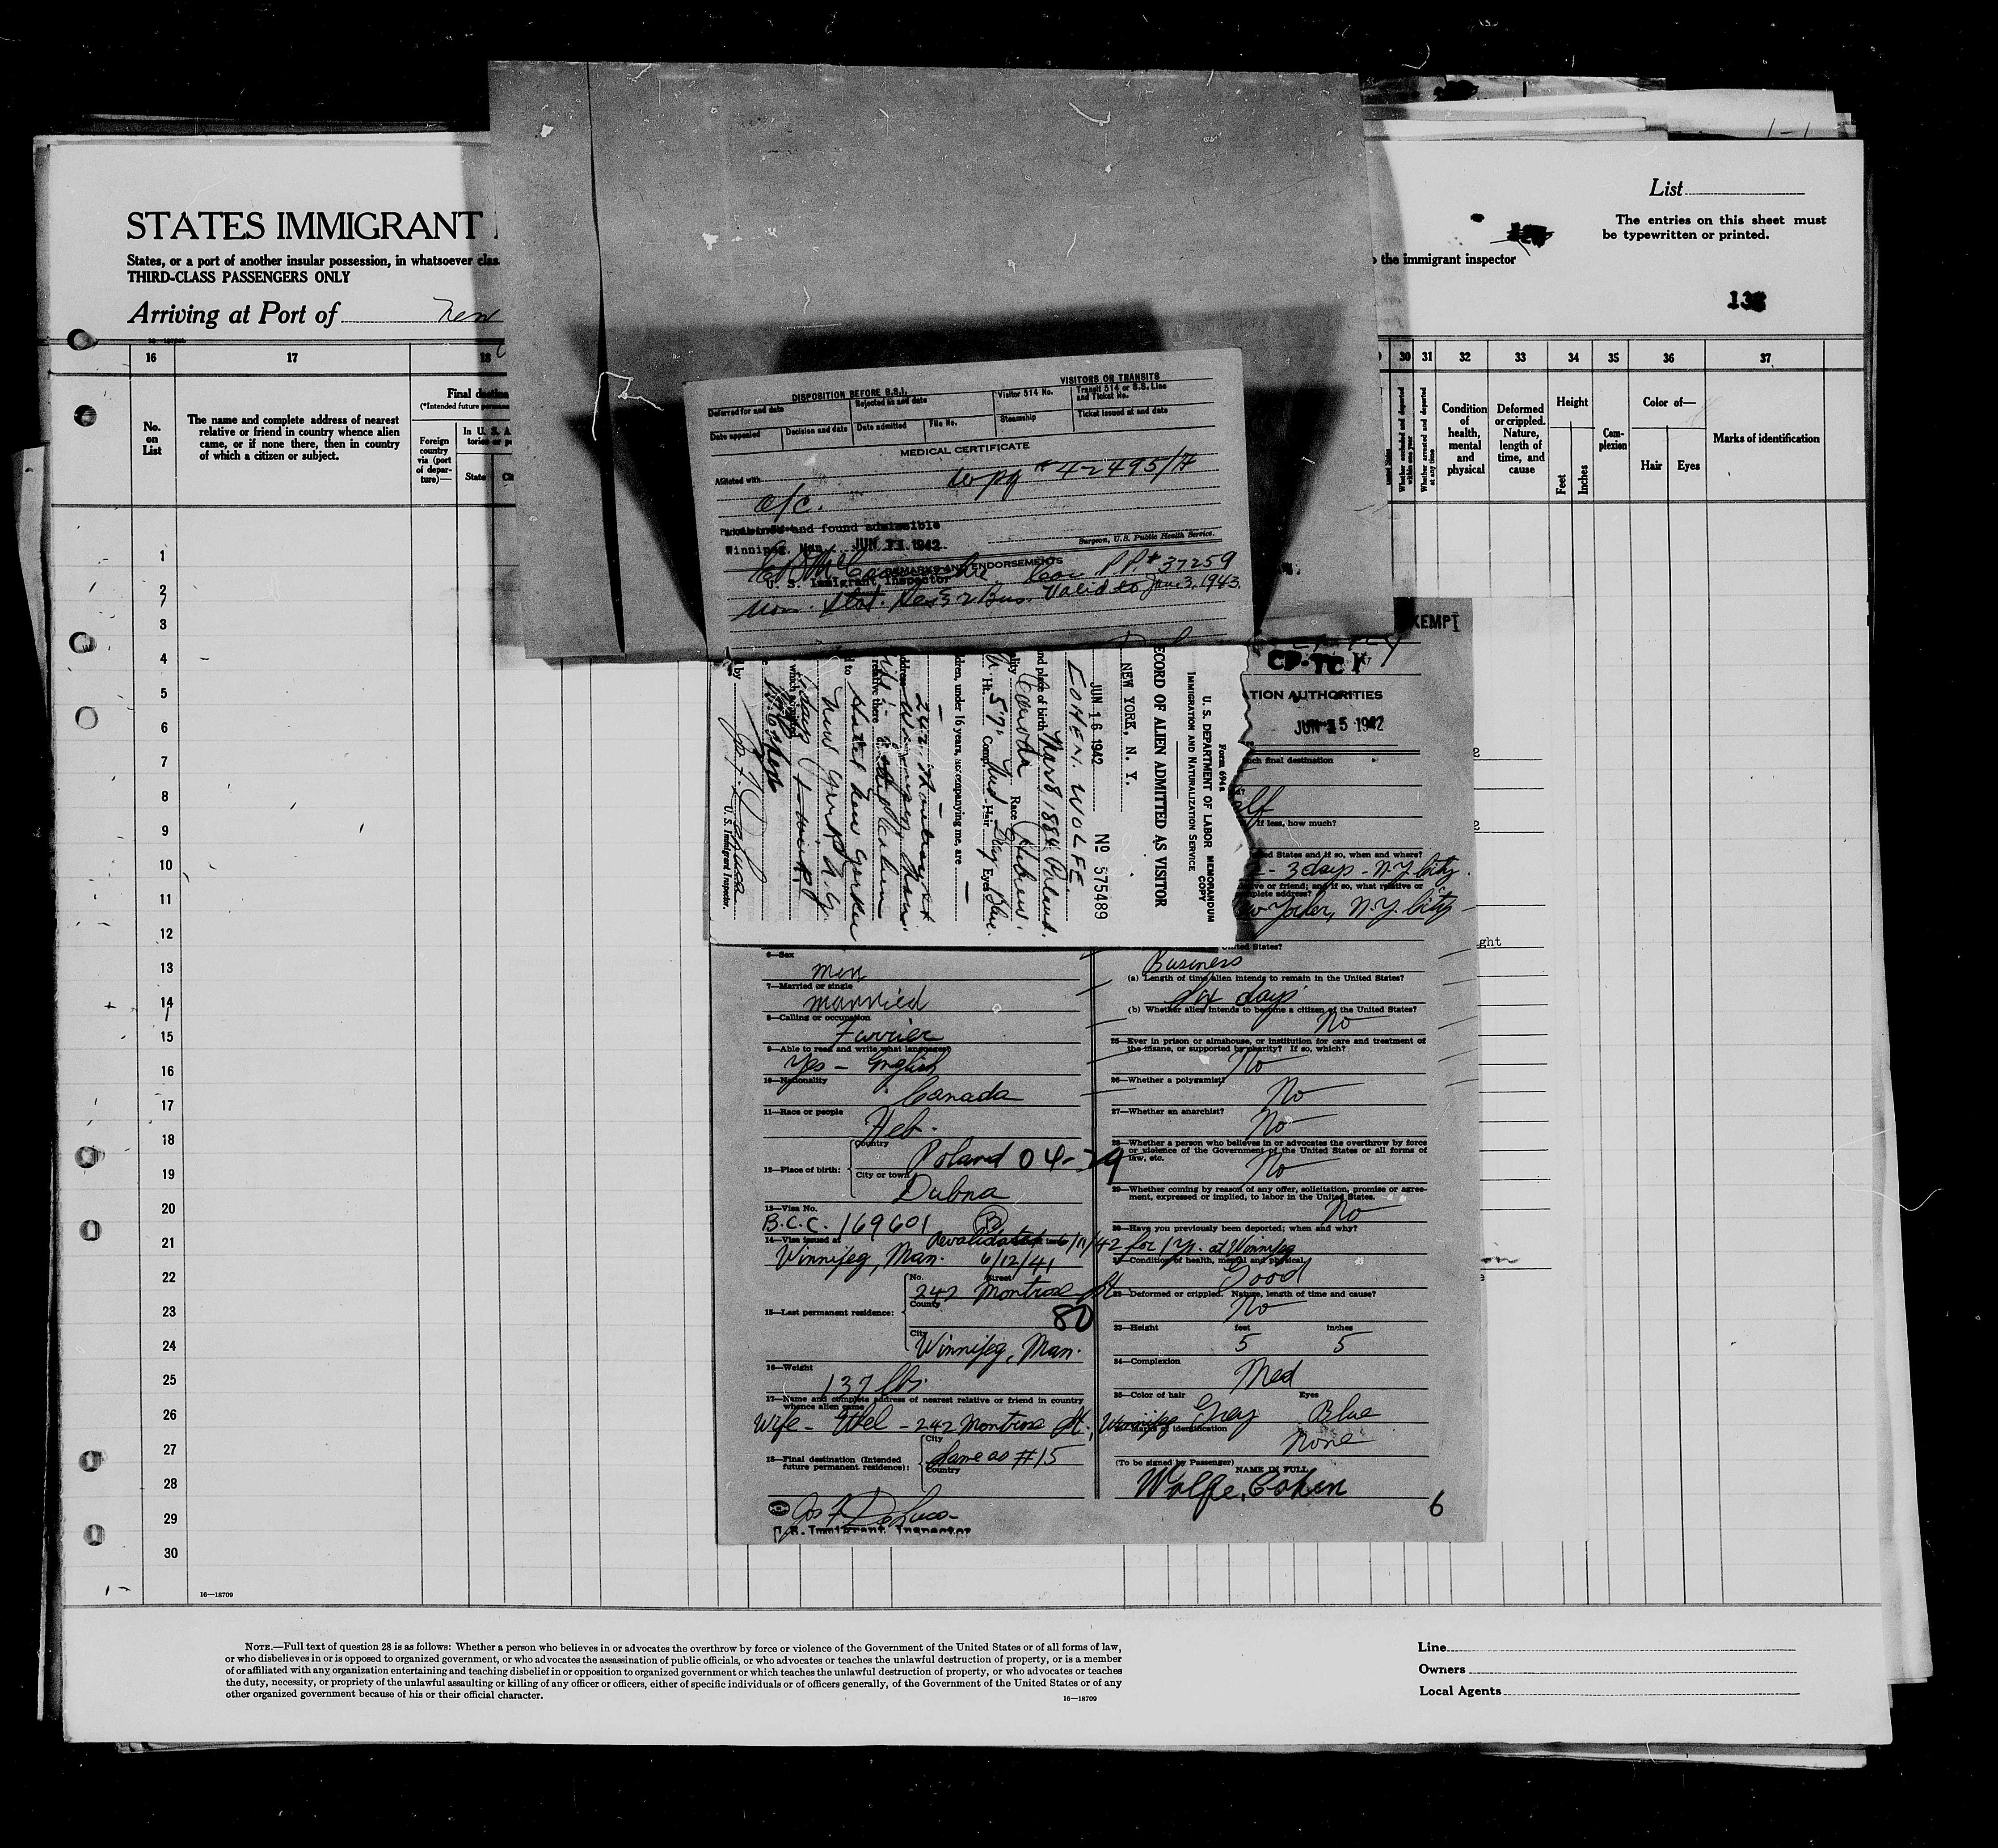 List
STATES IMMIGRANT
The entries on this sheet must
be typewritten or printed.
States, or a port of another insular possession, in whatsoever clas
the immigrant inspector
THIRD-CLASS PASSENGERS ONLY
Arriving at Port of New
16 17 18
30 31 32 33 34 35 36 37
No.
on
List
The name and complete address of nearest
relative or friend in country whence alien
came, or if none there, then in country
of which a citizen or subject.
Final destina
(*Intended future perman
Foreign
country
via (port
of depar-
ture)—
In U. S. A.
State
Whether arrested and deported
at any time
Condition
of
health,
mental
and
physical
Deformed
or crippled.
Nature,
length of
time, and
cause
Height
Feet
Inches
Com-
plexion
Color of—
Hair
Eyes
Marks of identification
DISPOSITION BEFORE B.S.I.
VISITORS OR TRANSITS
Deferred for and date
Rejected as and date
Visitor 514 No.
Transit 514 or S.S. Line
and Ticket No.
Date appealed
Decision and date
Date admitted
File No.
Steamship
Ticket issued at and date
MEDICAL CERTIFICATE
Afflicted with
Wpg # 42495/H
and found admissible
Winnipeg, Man. JUN 1942
Surgeon, U.S. Public Health Service.
REMARKS AND ENDORSEMENTS
U. S. Immigrant Inspector
Can. P.P. # 37259
Valid to June 3, 1943.
Form 694a
U. S. DEPARTMENT OF LABOR
MEMORANDUM
COPY
IMMIGRATION AND NATURALIZATION SERVICE
ECORD OF ALIEN ADMITTED AS VISITOR
NEW YORK, N. Y.
JUN 16 1942
No 575489
COHEN, WOLFE
nd place of birth Mar 8 1884 Poland.
lity Canada Race Hebrew.
Ht. 5'7" Comp. Med Hair Grey Eyes Blue.
dren, under 16 years, accompanying me, are —
address 242 Montrose st
Winnipeg Man.
relative there
d to Hotel New Yorker
New York N.Y.
by
U. S. Immigrant Inspector.
EXEMPT
CP-TC
TION AUTHORITIES
JUN 15 1942
ch final destination
If less, how much?
ed States and if so, when and where?
- 3 days - N.Y. City.
ive or friend; and if so, what relative or
plete address?
w Yorker, N.Y. City
ited States?
Business
(a) Length of time alien intends to remain in the United States?
Six days
(b) Whether alien intends to become a citizen of the United States?
No
25—Ever in prison or almshouse, or institution for care and treatment of
the insane, or supported by charity? If so, which?
No
26—Whether a polygamist?
No
27—Whether an anarchist?
No
28—Whether a person who believes in or advocates the overthrow by force
or violence of the Government of the United States or all forms of
law, etc.
No
29—Whether coming by reason of any offer, solicitation, promise or agree-
ment, expressed or implied, to labor in the United States.
No
30—Have you previously been deported; when and why?
31—Condition of health, mental and physical.
Good
32—Deformed or crippled. Nature, length of time and cause?
No
33—Height feet inches
5 5
34—Complexion
Med
35—Color of hair Eyes
Grey Blue
36—Marks of identification
None
(To be signed by Passenger)
NAME IN FULL
Wolfe, Cohen
6
6—Sex
men
7—Married or single
married
8—Calling or occupation
Furrier
9—Able to read and write what languages?
Yes - English
10—Nationality
Canada
11—Race or people
Heb.
12—Place of birth:
Country
Poland 04-29
City or town
Dubna
13—Visa No.
B.C.C. 169601 B
Revalidated 6/11/42 for 1 yr. at Winnipeg
14—Visa issued at
Winnipeg, Man. 6/12/41
15—Last permanent residence:
No. Street
242 Montrose St
County
80
City
Winnipeg, Man.
16—Weight
137 lbs.
17—Name and complete address of nearest relative or friend in country
whence alien came
Wife - Ethel - 242 Montrose St., Winnipeg
18—Final destination (Intended
future permanent residence):
City
Same as #15
Country
Jos F. DeLuca
U.S. Immigrant Inspector
1
2
3
4
5
6
7
8
9
10
11
12
13
14
15
16
17
18
19
20
21
22
23
24
25
26
27
28
29
30
16—18709
NOTE.—Full text of question 28 is as follows: Whether a person who believes in or advocates the overthrow by force or violence of the Government of the United States or of all forms of law,
or who disbelieves in or is opposed to organized government, or who advocates the assassination of public officials, or who advocates or teaches the unlawful destruction of property, or is a member
of or affiliated with any organization entertaining and teaching disbelief in or opposition to organized government or which teaches the unlawful destruction of property, or who advocates or teaches
the duty, necessity, or propriety of the unlawful assaulting or killing of any officer or officers, either of specific individuals or of officers generally, of the Government of the United States or of any
other organized government because of his or their official character.
16—18709
Line
Owners
Local Agents